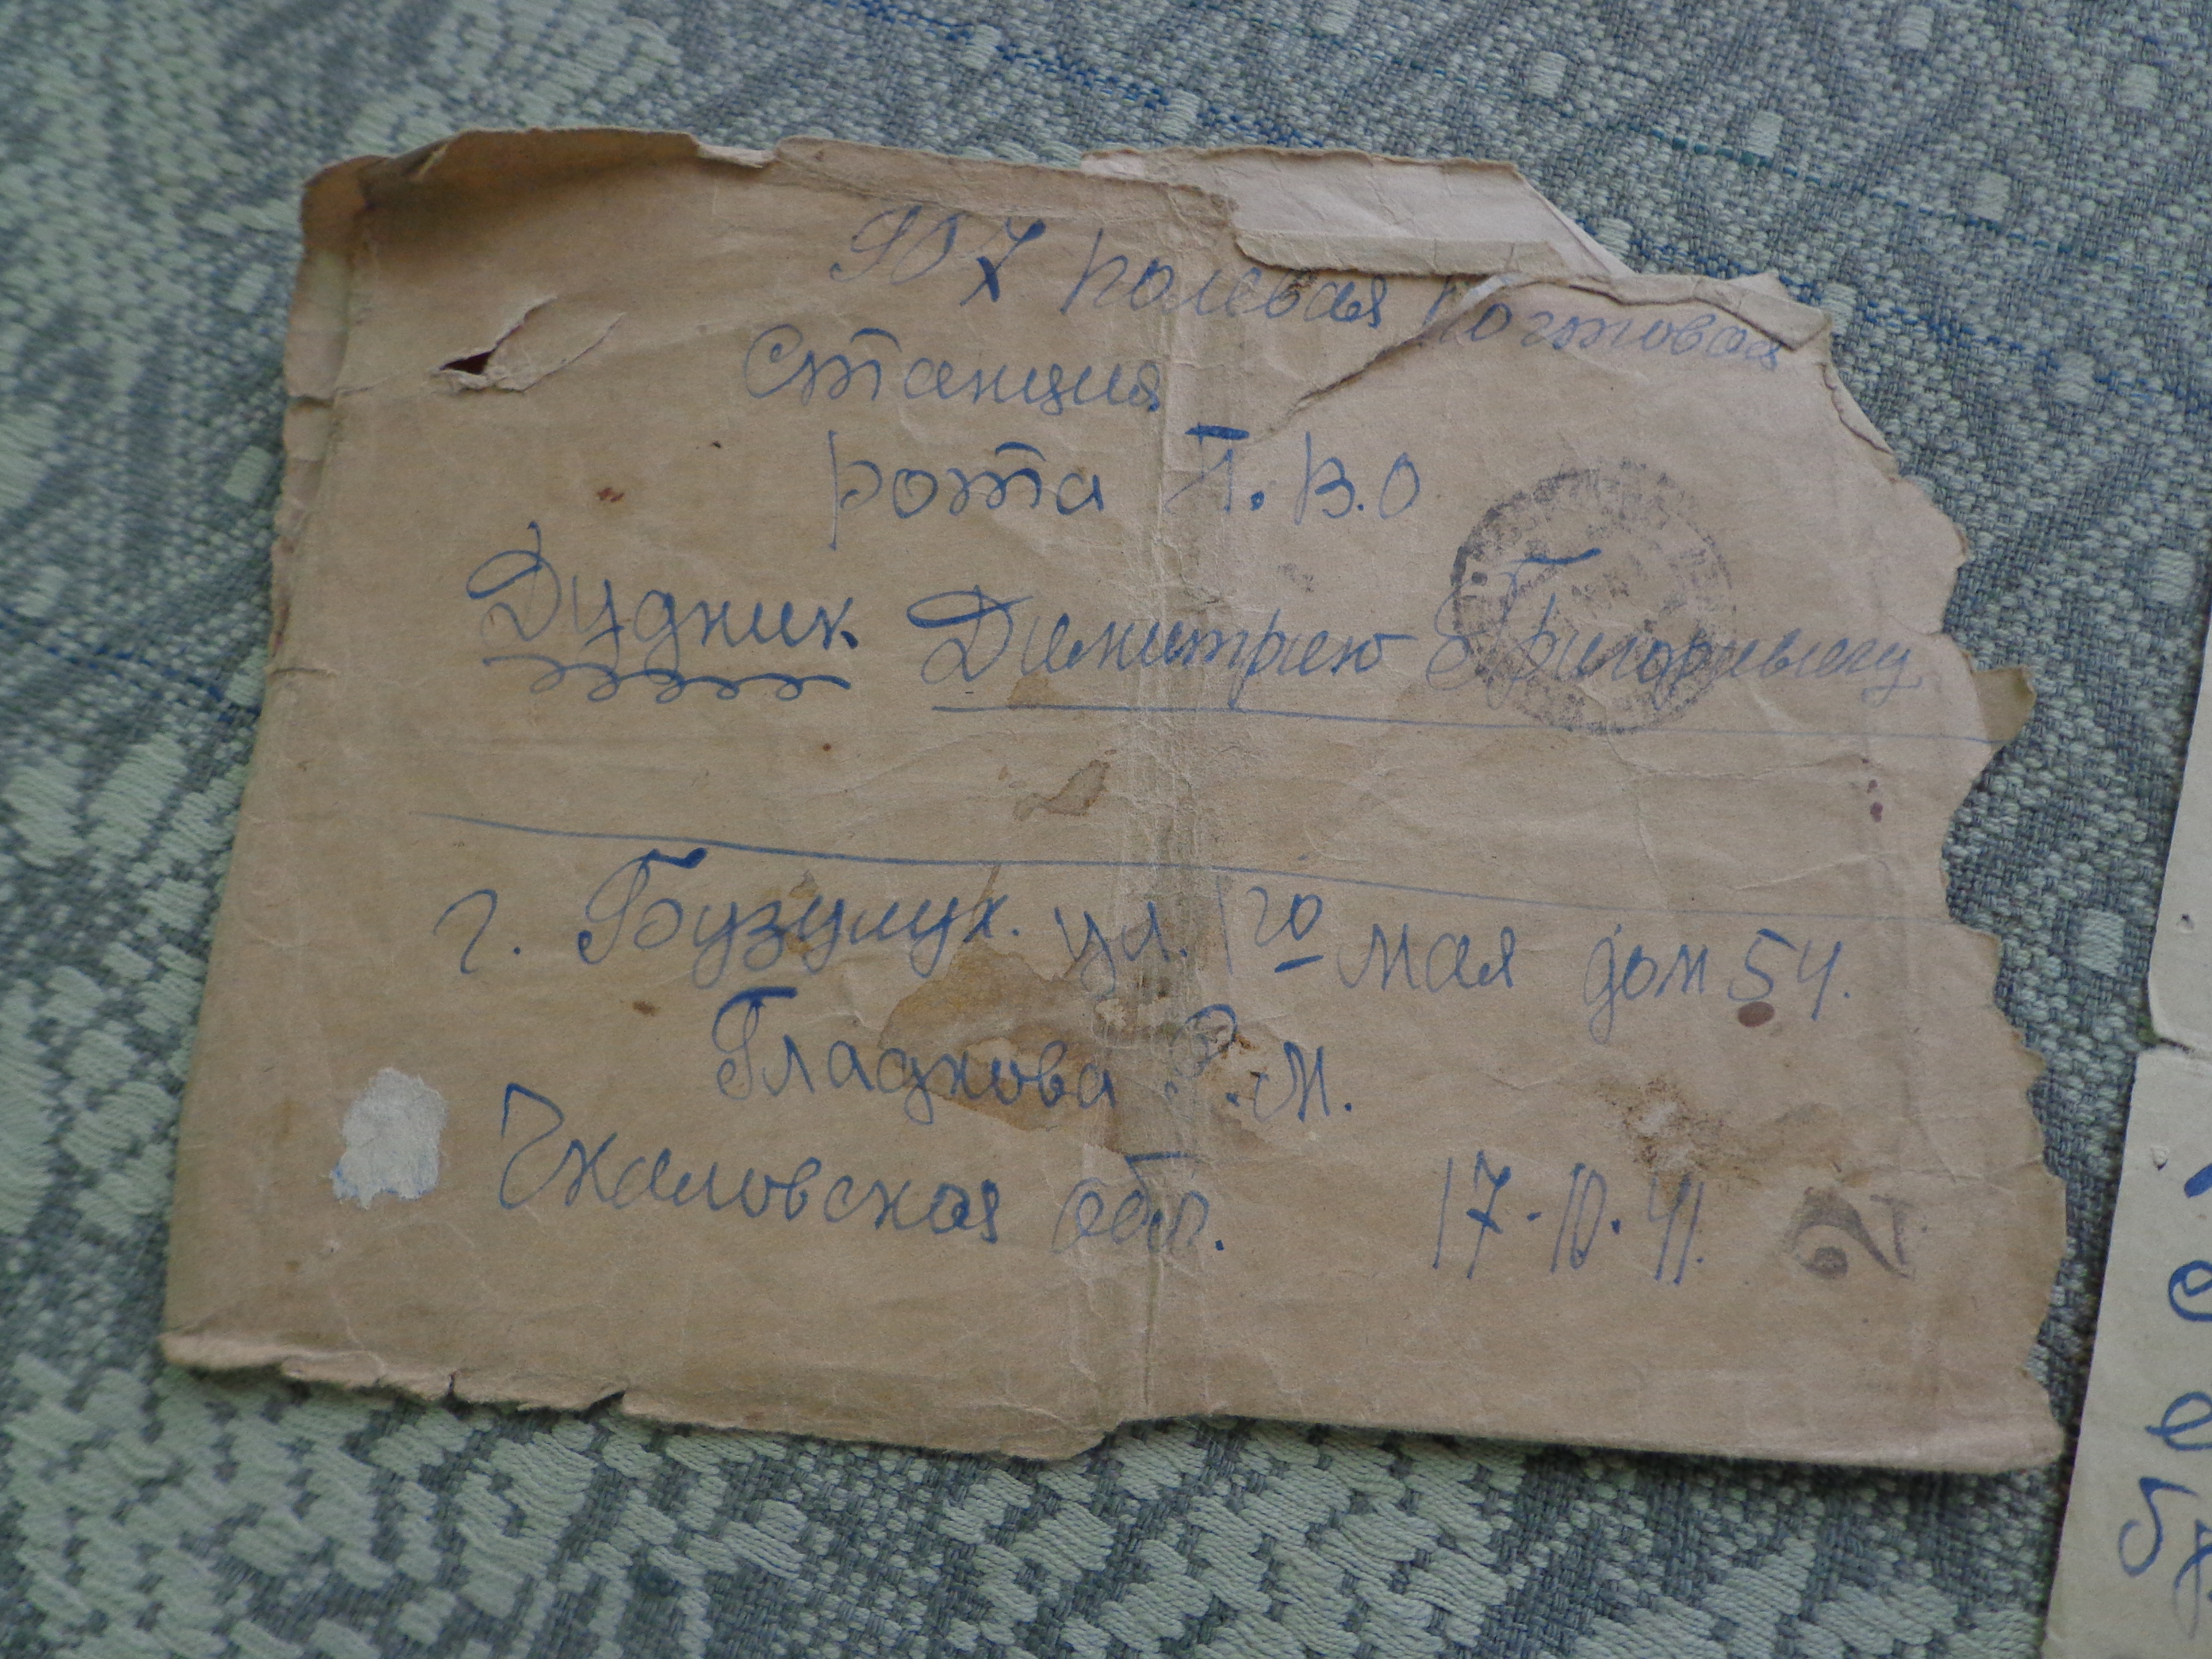 957 полевая почтовая
Станция
рота П.В.О
Дудник Димитрею Григоривичу
г. Бузулук. ул. 1го мая дом 54.
Гладкова Р.М.
Чкаловская обл. 17.10.41.
2